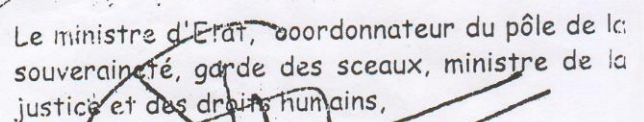 Le ministre d'Etat, coordonnateur du pôle de la
souveraineté, garde des sceaux, ministre de la
justice et des droits humains,